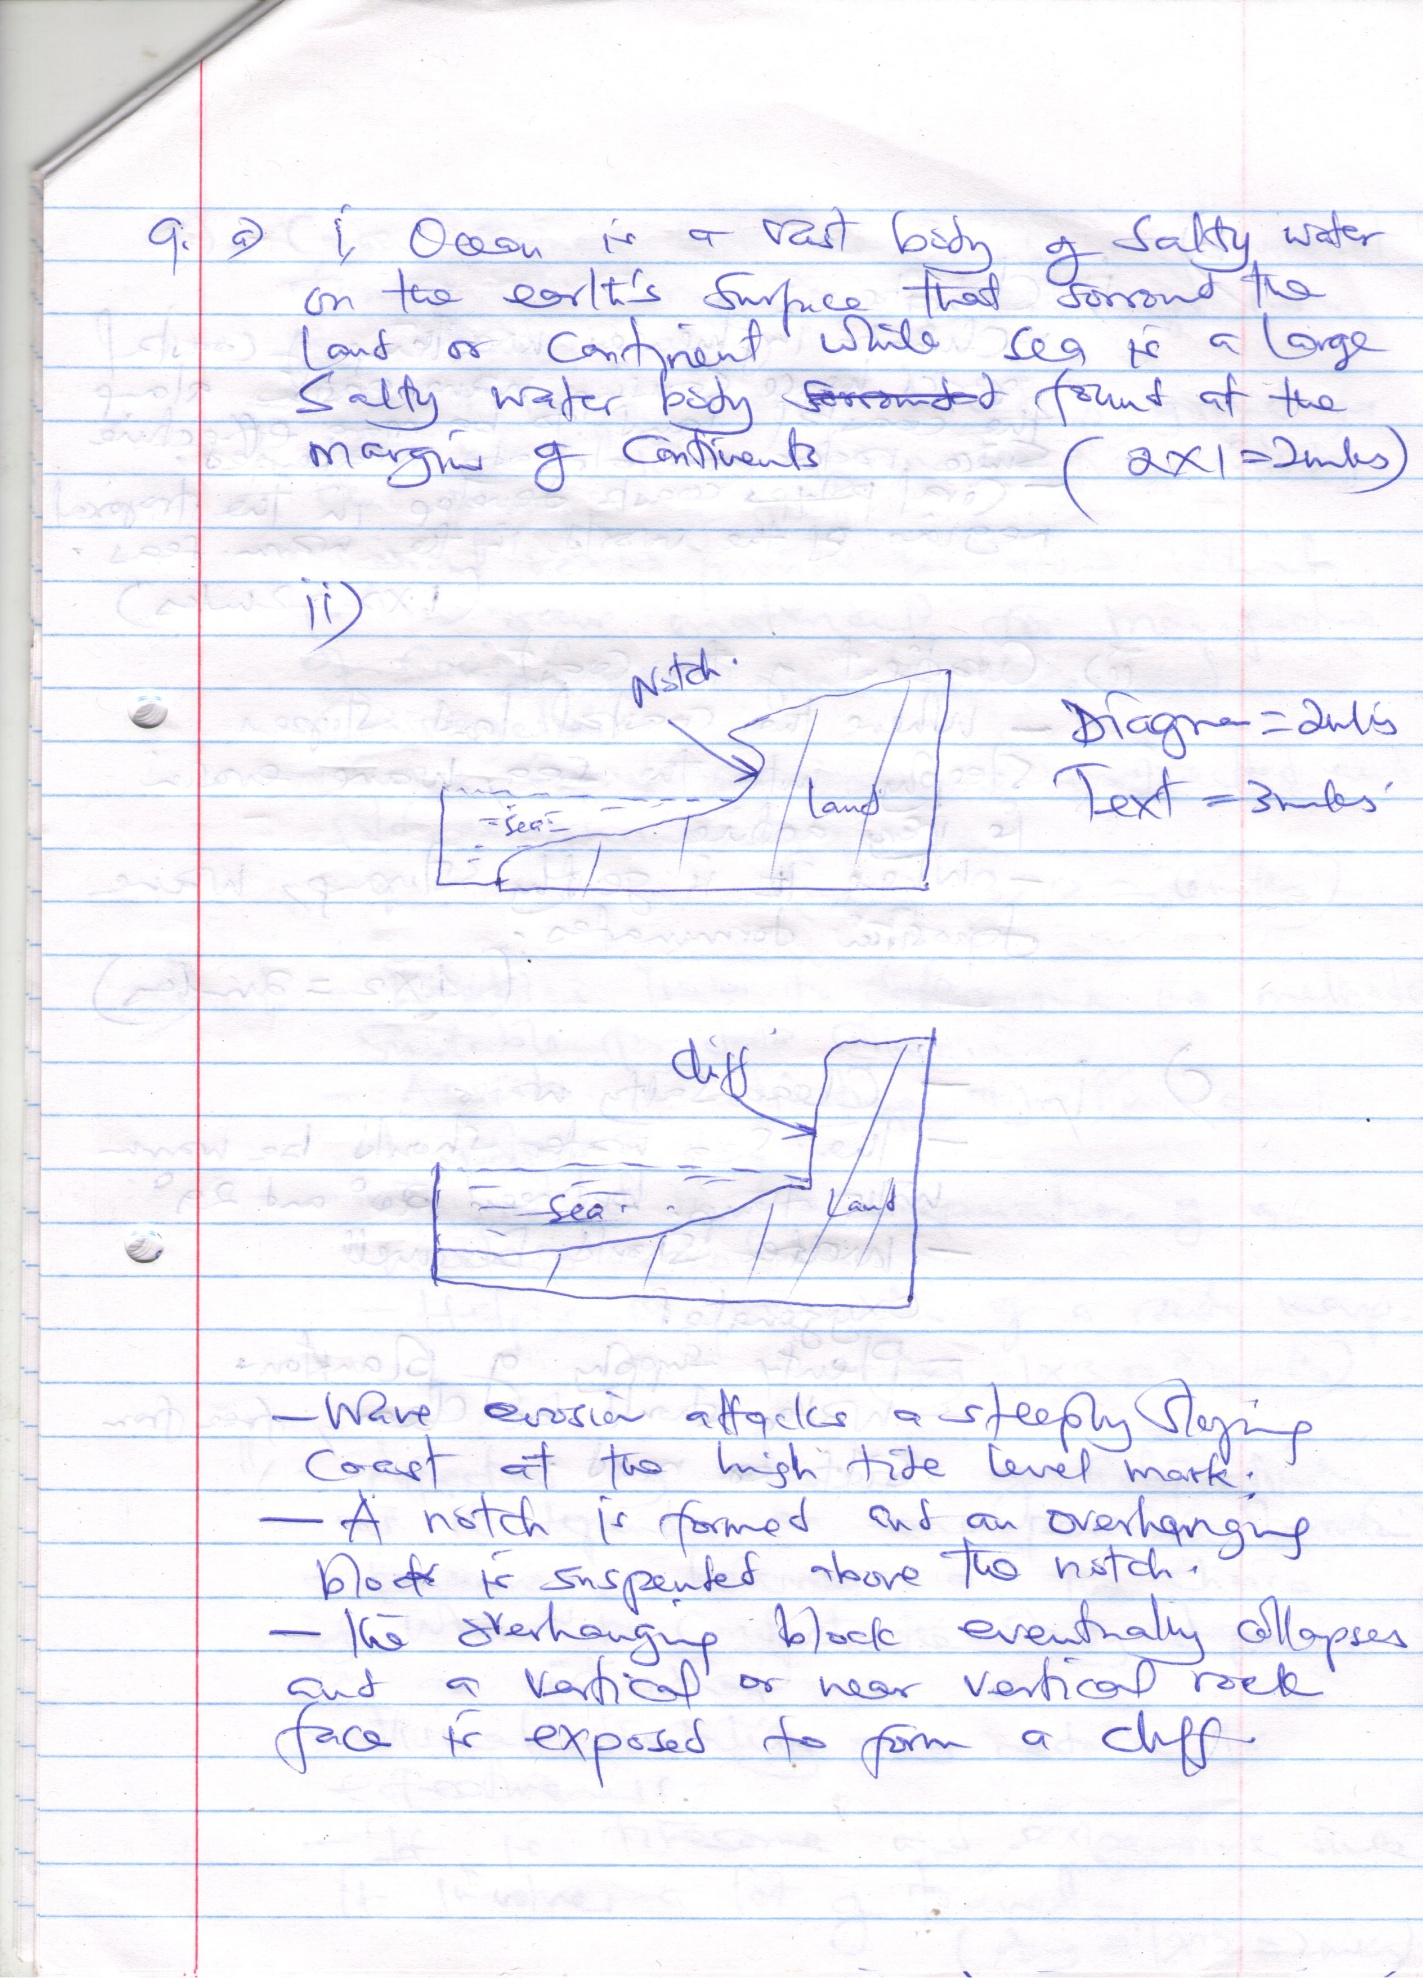 9. a) i, Ocean is a vast body of Salty water
on the earth's surface that sorround the
Land or Continent while sea is a large
Salty water body sorrounded found at the
margins of Continents (2x1=2mks)
ii)
Notch.
Diagram = 2mks
Text = 3mks
sea
Land
Cliff
Sea
Land
- Wave erosion attacks a steeply sloping
Coast at the high tide level mark.
- A notch is formed and an overhanging
block is suspended above the notch.
- The overhanging block eventually collapses
and a vertical or near vertical rock
face is exposed to form a cliff.